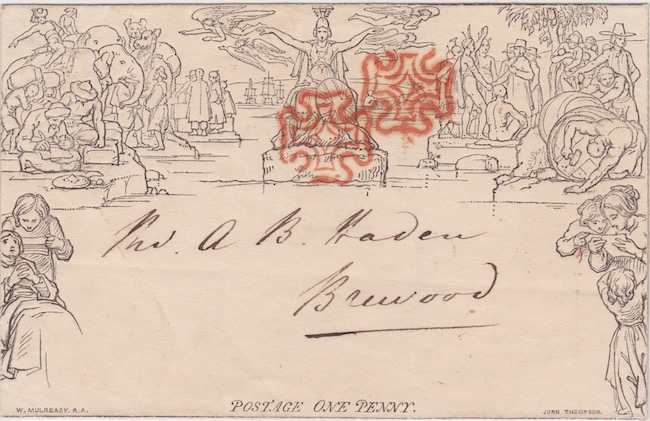 A B. Haden
Brewood
POSTAGE ONE PENNY.
W. MULREADY. R.A.
JOHN THOMPSON.